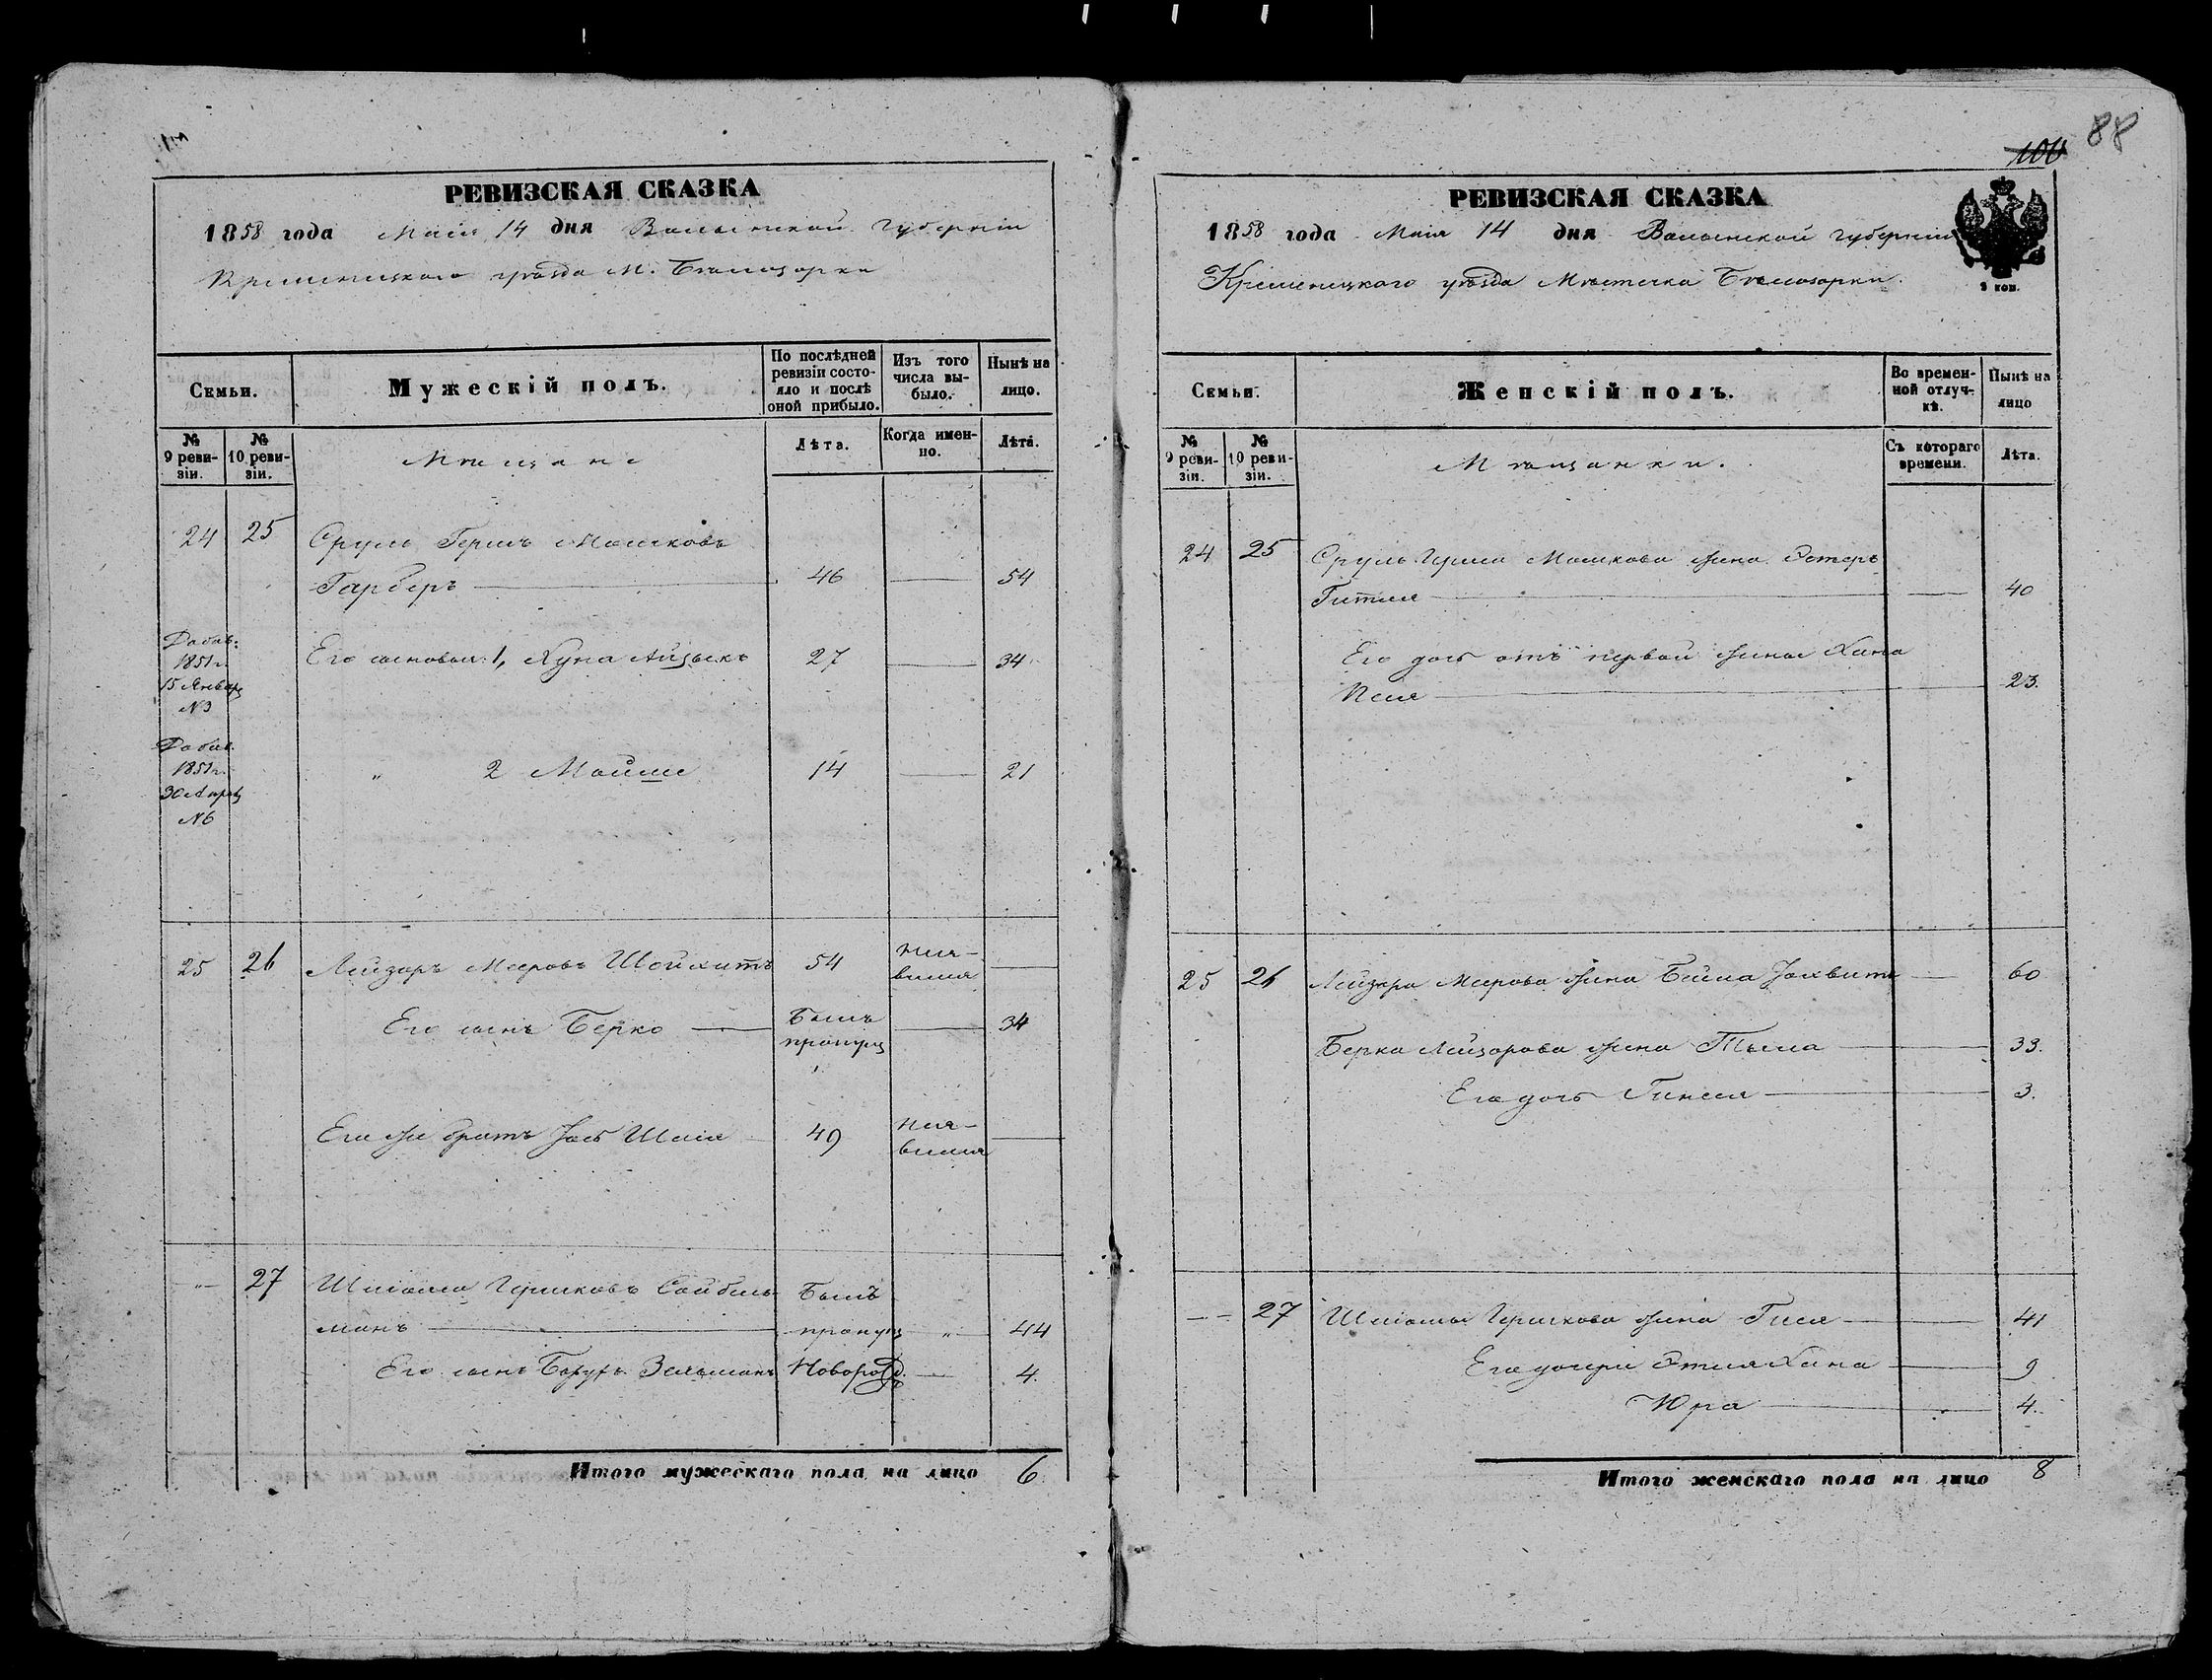 РЕВИЗСКАЯ СКАЗКА
1858 года Маія 14 дня Волынской Губерніи
Кременецкаго уѣзда М. Бѣлозорки
Семьи.
Мужескій полъ.
По послѣдней ревизіи состояло и послѣ оной прибыло.
Изъ того числа выбыло.
Нынѣ на лицо.
№ 9 ревизіи.
№ 10 ревизіи.
Мѣщане
Лѣта.
Когда именно.
Лѣта.
24 25 Сруль Гершъ Мошковъ
Гарберъ 46 54
Добав. 1851 г. 15 Январ. №3
Его сыновья: 1, Хуна Айзыкъ 27 34
Добав. 1851 г. 30 Апрѣ №6
" 2 Мойше 14 21
25 26 Лейзоръ Мееровъ Шойхитъ 54 неявился
Его сынъ Берко Былъ пропущ 34
Его же братъ Іось 49 неявился
" 27 Шлiома Гершковъ Сойбельманъ Былъ пропущ " 44
Его сынъ Борухъ Зельманъ Новорожд. 4.
Итого мужескаго пола на лицо 6
88
100
РЕВИЗСКАЯ СКАЗКА
1858 года Маія 14 дня Волынской губерніи
Кременецкого уѣзда Мѣстечка Бѣлозорки.
Семьи.
Женскій полъ.
Во временной отлучкѣ.
Нынѣ на лицо
№ 9 ревизіи.
№ 10 ревизіи.
Мѣщанки.
Съ котораго времени.
Лѣта.
24 25 Сруль Герша Мошкова жена Эстеръ
Гитля 40
Его дочь отъ первой жены Хана
23.
25 26 Лейзора Меерова жена Бейла 60
Берка Лейзорова жена 33.
Его дочь 3.
27 Шлiомы Гершкова жена Гися 41
Его дочери Этля Хана 9
Юра 4.
Итого женскаго пола на лицо 8